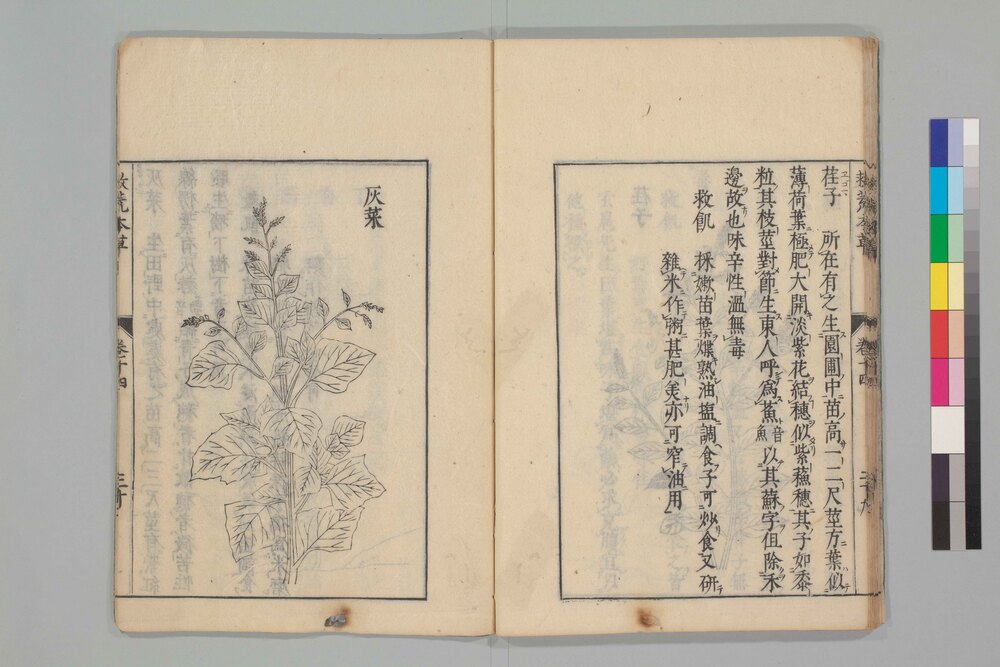 荏子　所在有之生園圃中苗高一二尺莖方葉似
薄荷葉極肥大開淡紫花結穗似紫蘇穗其子如黍
粒其枝莖對節生東人呼為䕊音魚以其蘇字但除禾
邊故也味辛性溫無毒
救飢　採嫩苗葉煠熟油塩調食子可炒食又研
雜米作粥甚肥美亦可窄油用
救荒本草
卷十四
二十九
灰菜
救荒本草
卷十四
三十